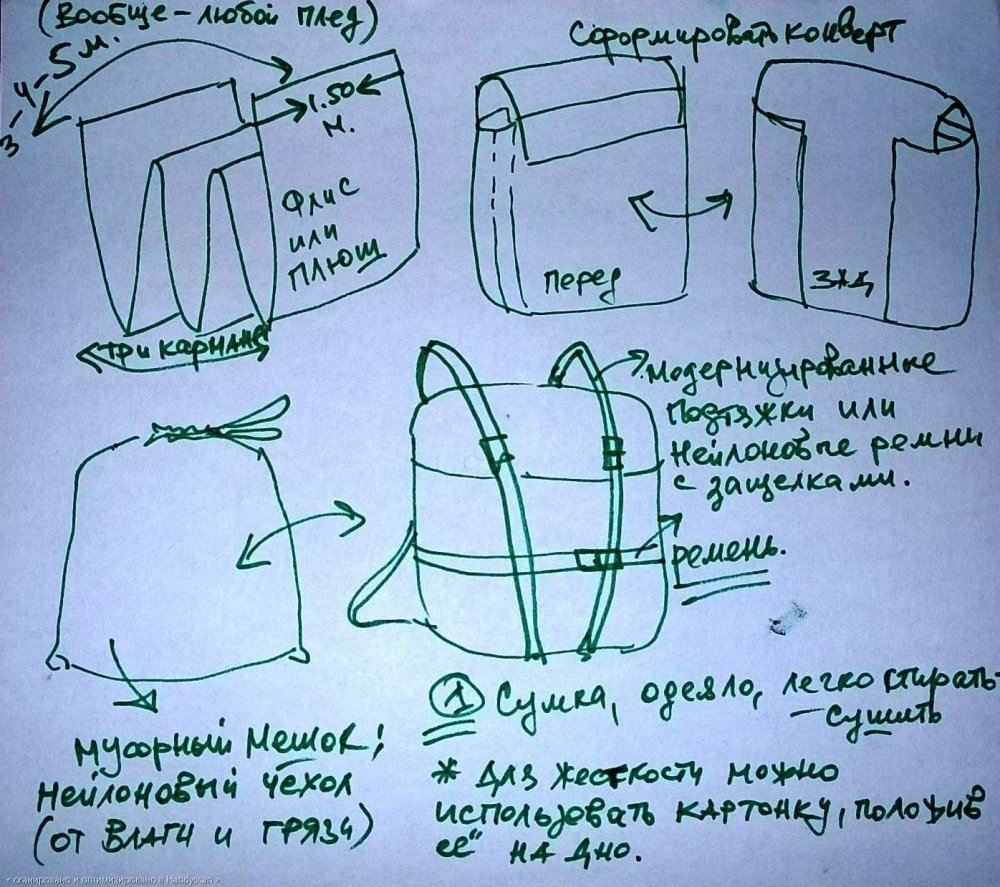 (Вообще - любой плед)
3-4-5 м.
1.50
м.
Флис
или
плюш
три кармана
Сформировать конверт
перед
зад
модернизированные
подтяжки или
нейлоновые ремни
с защелками.
ремень.
мусорный мешок;
нейлоновый чехол
(от влаги и грязи)
1 Сумка, одеяло, легко стирать-
-сушить
* Для жесткости можно
использовать картонку, положив
её на дно.
« сканировано и оптимизировано в Handyscan »